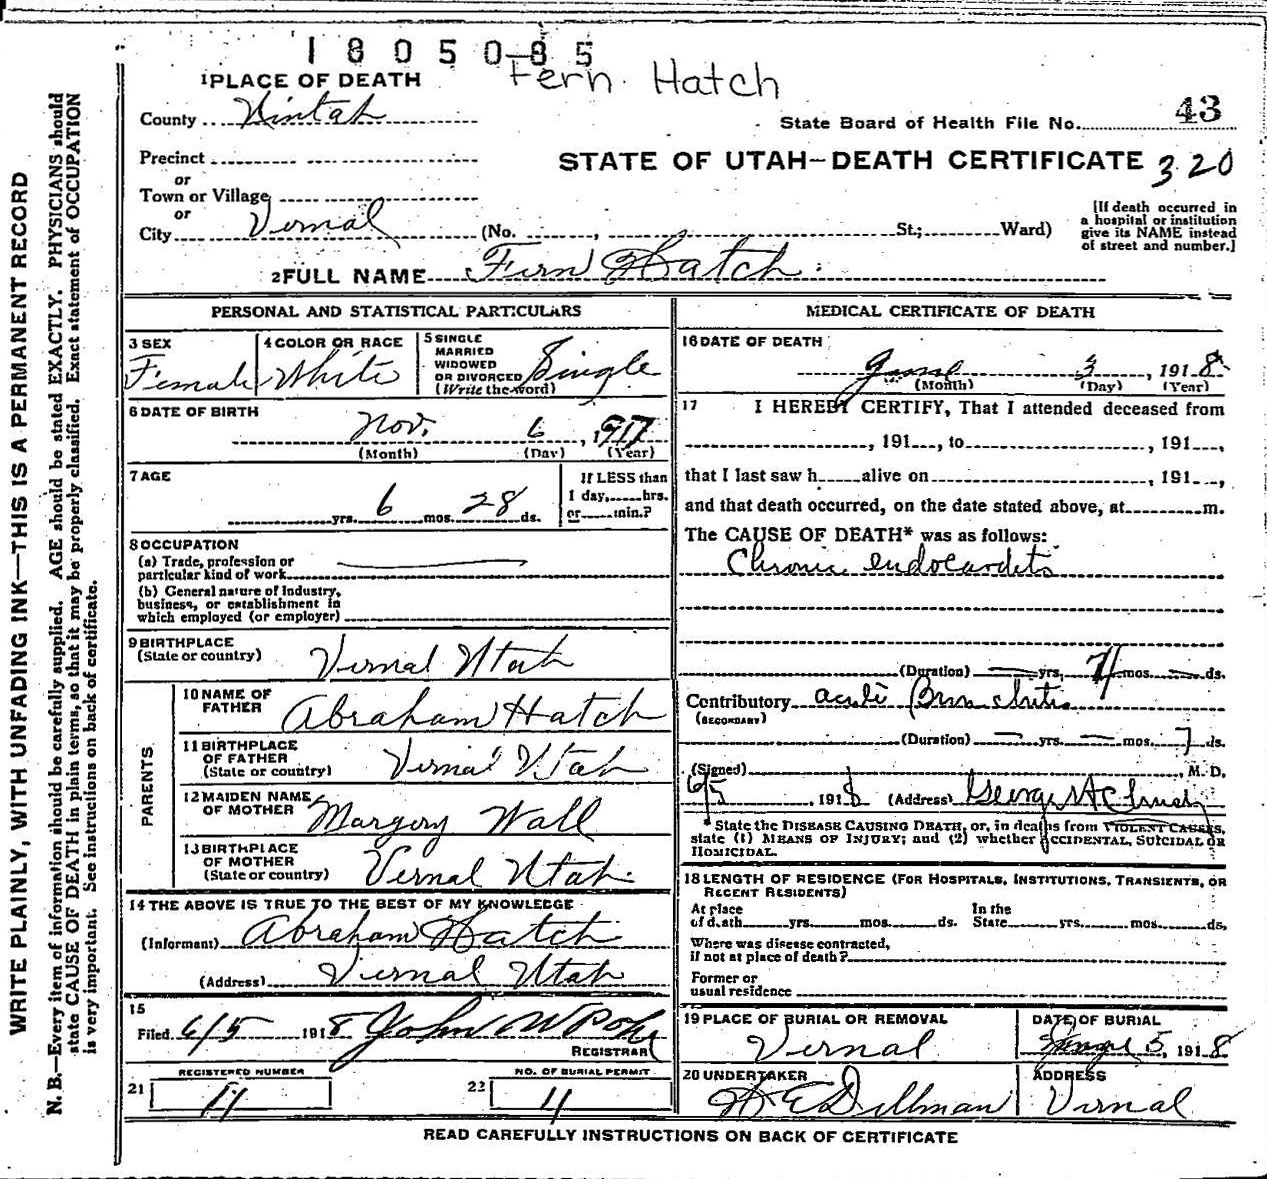 1805085
Fern Hatch
1 PLACE OF DEATH
County Uintah
State Board of Health File No. 43
Precinct
STATE OF UTAH—DEATH CERTIFICATE 320
or
Town or Village
or
City Vernal (No. , St.; Ward)
[If death occurred in a hospital or institution give its NAME instead of street and number.]
2 FULL NAME Fern Hatch
PERSONAL AND STATISTICAL PARTICULARS
3 SEX Female
4 COLOR OR RACE White
5 SINGLE MARRIED WIDOWED OR DIVORCED (Write the word) Single
6 DATE OF BIRTH
Nov. 6, 1917
(Month) (Day) (Year)
7 AGE
yrs. 6 mos. 28 ds.
If LESS than 1 day, hrs. or min.?
8 OCCUPATION
(a) Trade, profession or
particular kind of work
(b) General nature of Industry,
business, or establishment in
which employed (or employer)
9 BIRTHPLACE
(State or country) Vernal Utah
PARENTS
10 NAME OF FATHER Abraham Hatch
11 BIRTHPLACE OF FATHER (State or country) Vernal Utah
12 MAIDEN NAME OF MOTHER Margery Wall
13 BIRTHPLACE OF MOTHER (State or country) Vernal Utah.
14 THE ABOVE IS TRUE TO THE BEST OF MY KNOWLEDGE
(Informant) Abraham Hatch
(Address) Vernal Utah
15
Filed 6/5 1918 John W
REGISTRAR
REGISTERED NUMBER
21 11
NO. OF BURIAL PERMIT
22 11
MEDICAL CERTIFICATE OF DEATH
16 DATE OF DEATH
June 3, 1918
(Month) (Day) (Year)
17 I HEREBY CERTIFY, That I attended deceased from
, 191 , to , 191 ,
that I last saw h alive on , 191 ,
and that death occurred, on the date stated above, at m.
The CAUSE OF DEATH* was as follows:
Chronic endocarditis
(Duration) yrs. 7 mos. ds.
Contributory acute Bronchitis
(SECONDARY)
(Duration) yrs. mos. 7 ds.
(Signed) , M. D.
6/5, 1918 (Address) George
*State the DISEASE CAUSING DEATH, or, in deaths from VIOLENT CAUSES,
state (1) MEANS OF INJURY; and (2) whether ACCIDENTAL, SUICIDAL OR
HOMICIDAL.
18 LENGTH OF RESIDENCE (FOR HOSPITALS, INSTITUTIONS, TRANSIENTS, OR
RECENT RESIDENTS)
At place of death yrs. mos. ds. In the State yrs. mos. ds.
Where was disease contracted,
if not at place of death?
Former or
usual residence
19 PLACE OF BURIAL OR REMOVAL
Vernal
DATE OF BURIAL
June 5, 1918
20 UNDERTAKER
W E Dillman
ADDRESS
Vernal
READ CAREFULLY INSTRUCTIONS ON BACK OF CERTIFICATE
WRITE PLAINLY, WITH UNFADING INK—THIS IS A PERMANENT RECORD
N. B.—Every item of information should be carefully supplied. AGE should be stated EXACTLY. PHYSICIANS should
state CAUSE OF DEATH in plain terms, so that it may be properly classified. Exact statement of OCCUPATION
is very important. See instructions on back of certificate.